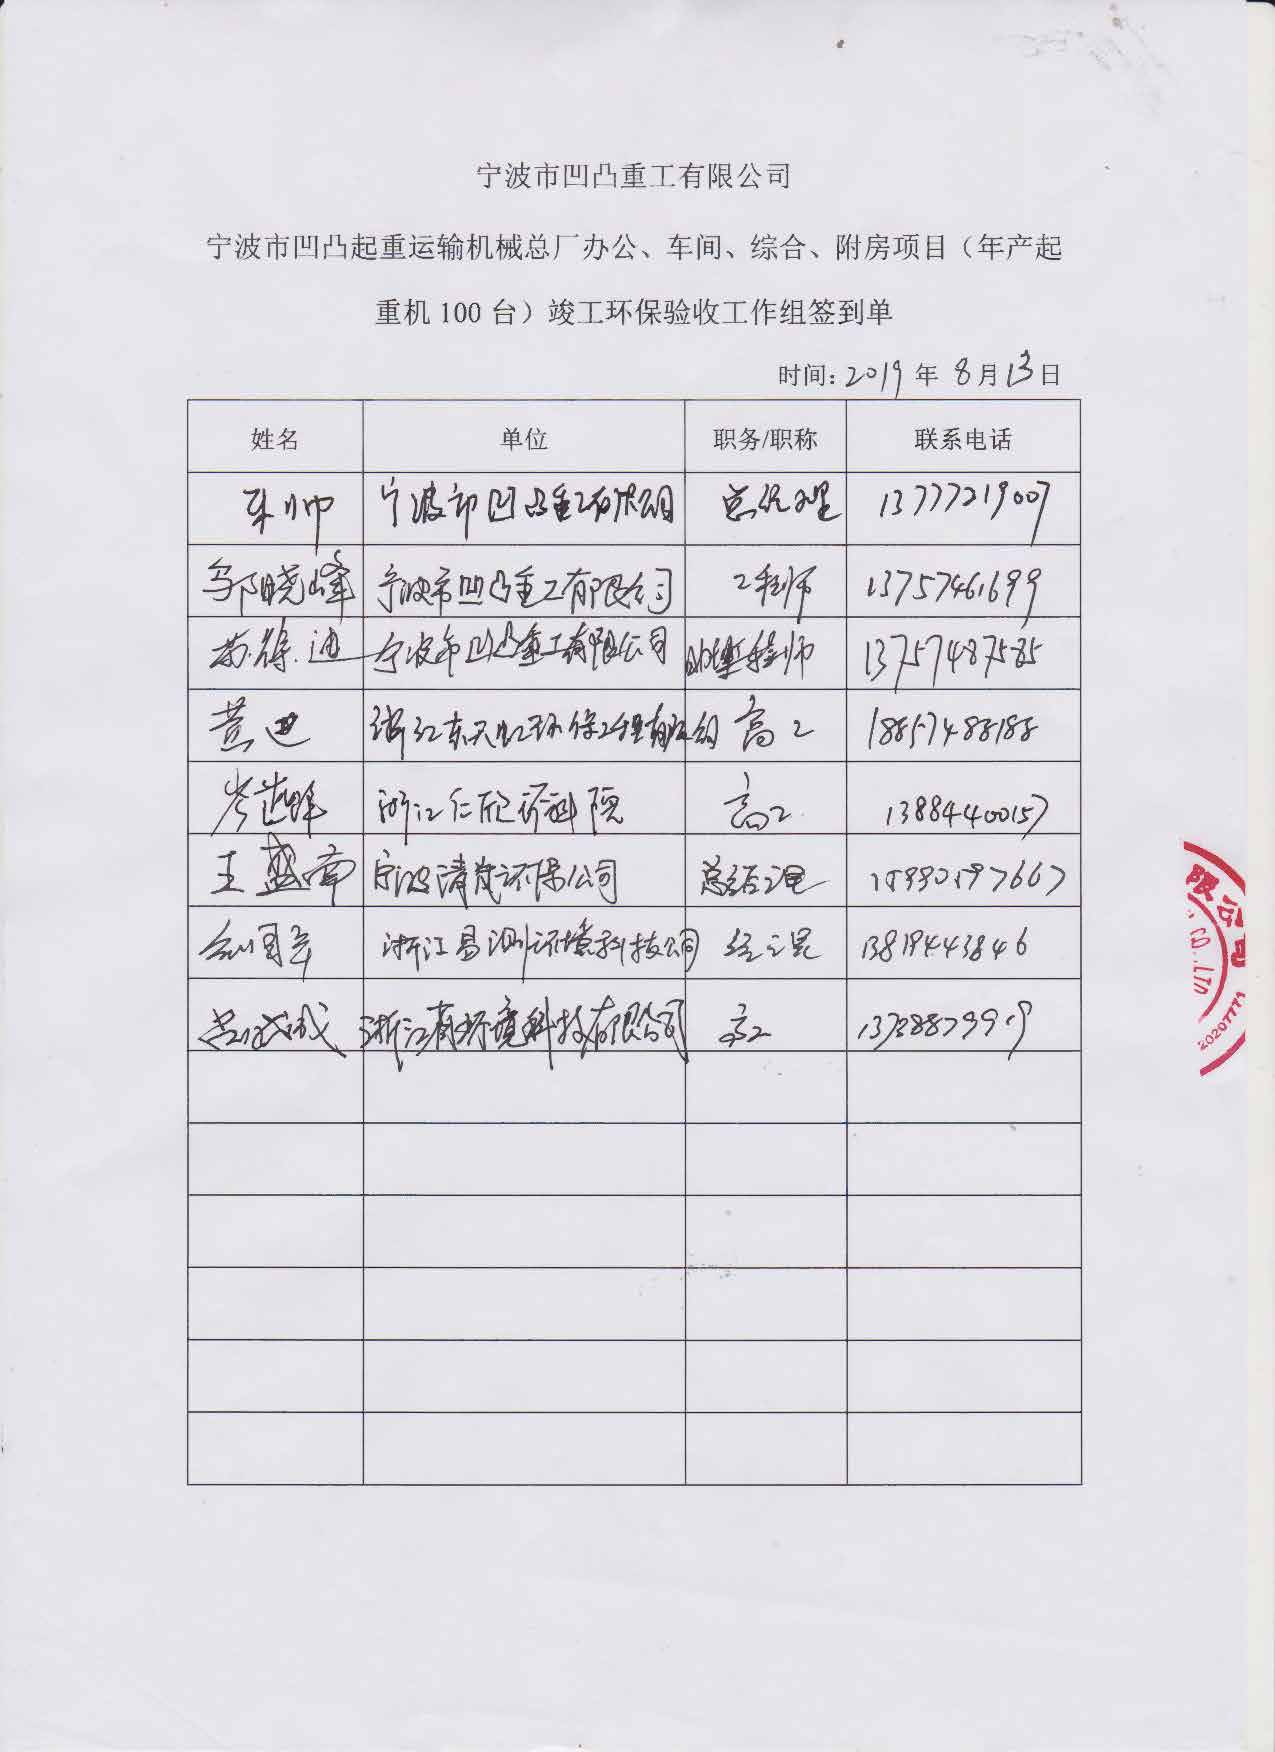 宁波市凹凸重工有限公司
宁波市凹凸起重运输机械总厂办公、车间、综合、附房项目（年产起
重机 100 台）竣工环保验收工作组签到单
时间: 2019 年 8 月 13 日
姓名 单位 职务/职称 联系电话
宁波市凹凸重工有限公司 总经理 13777219007
邬晓峰 宁波市凹凸重工有限公司 工程师 13757461699
宁波市凹凸重工有限公司 助理工程师 13757487585
浙江东天虹环保工程有限公司 高工 18857488188
浙江仁欣环科院 高工 13884400157
王盛南 宁波清茂环保公司 总经理
浙江易测环境科技公司 经理 13819443846
环境科技有限公司 高工
限公司
CO.,LTD
20207771